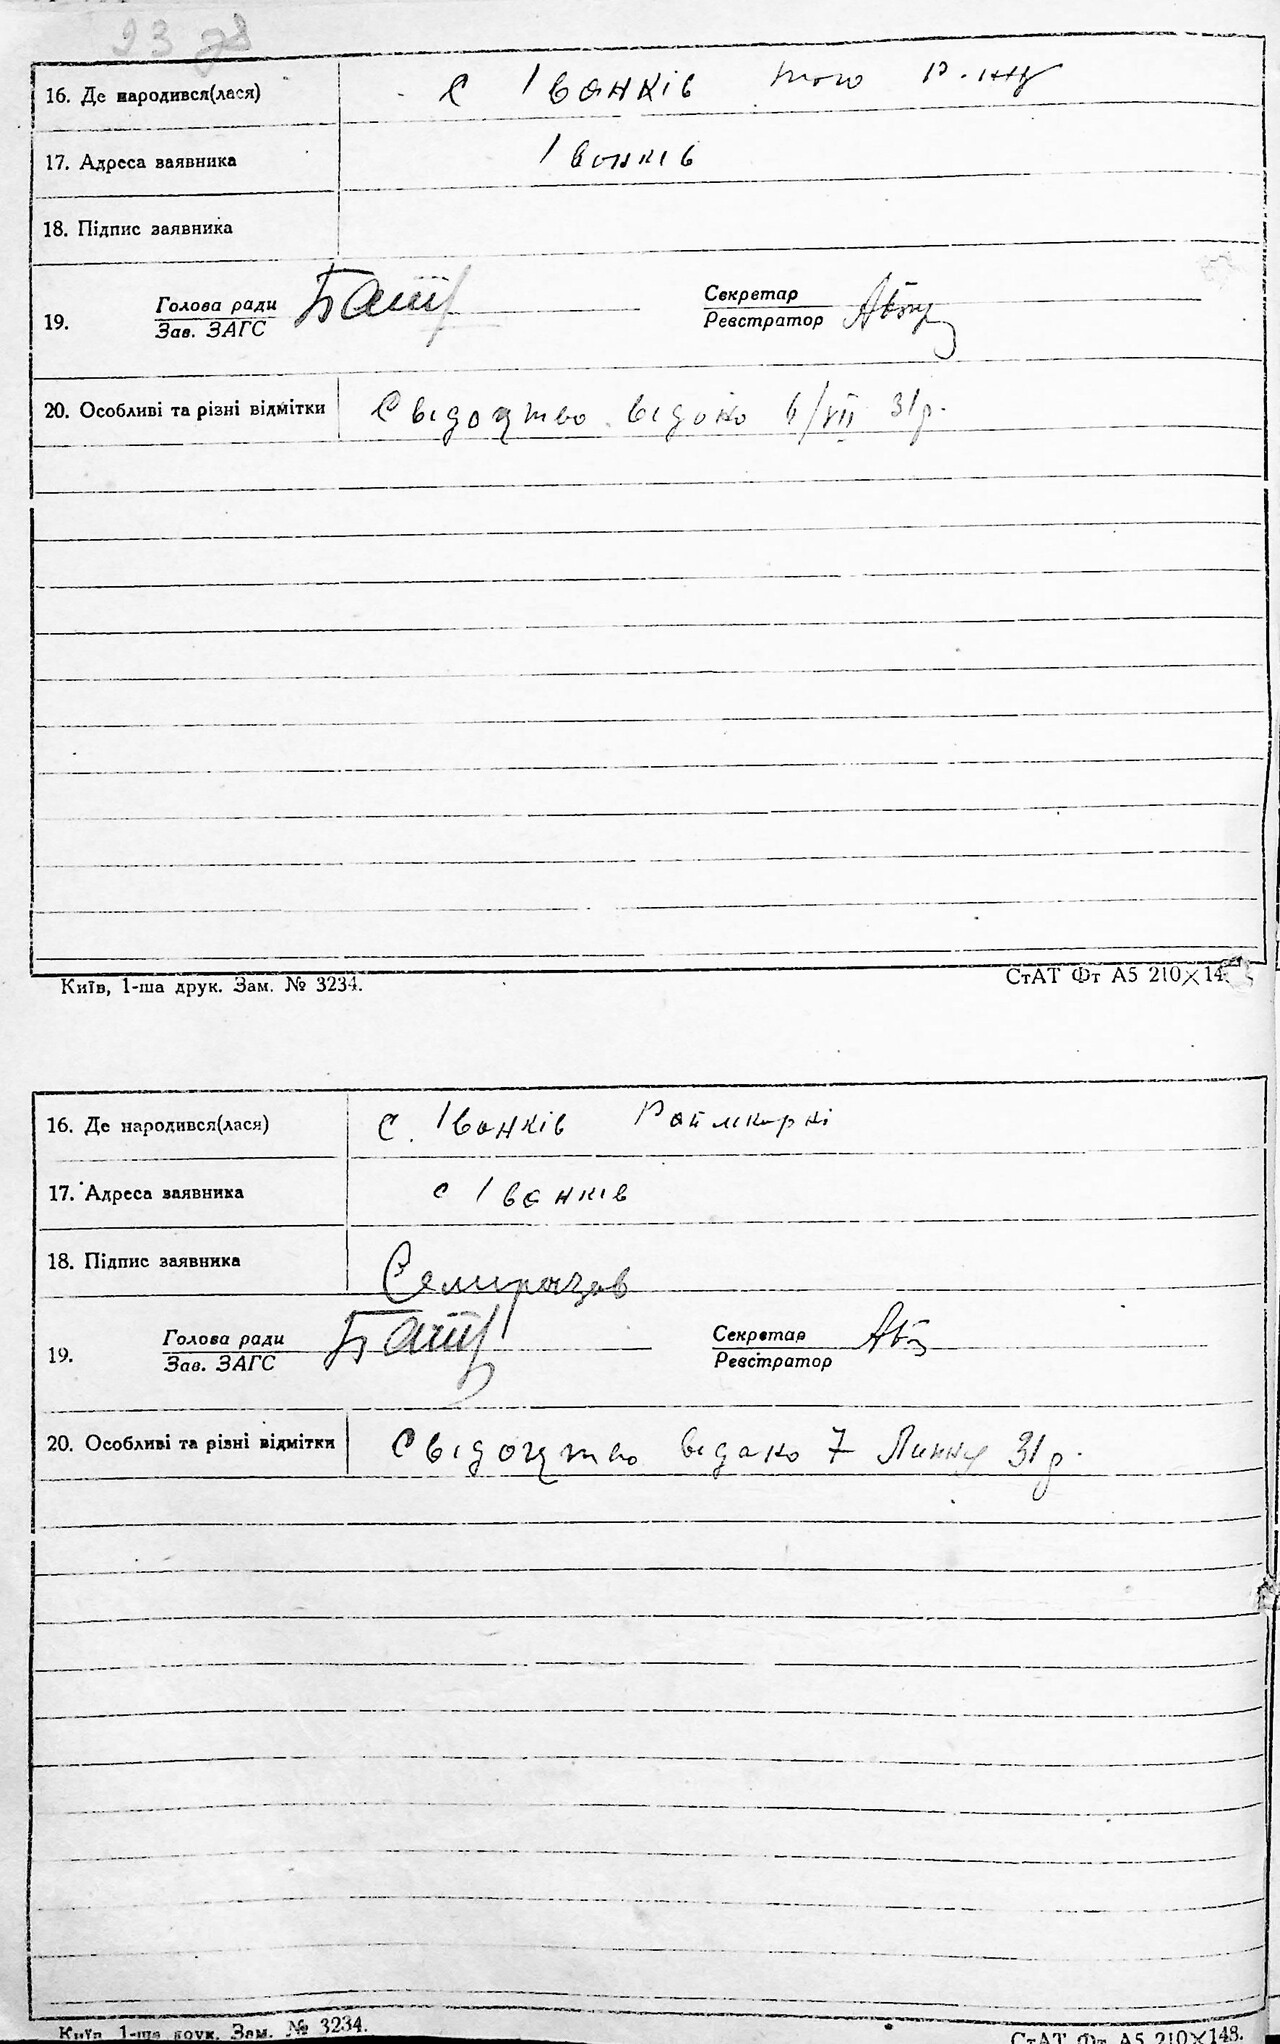 23 зв
16. Де народився(лася) с Іванків того р-ну
17. Адреса заявника Іванків
18. Підпис заявника
Голова ради Секретар
19.
Зав. ЗАГС Реєстратор
20. Особливі та різні відмітки Свідоцтво видано 6/VII 31р.
Київ, 1-ша друк. Зам. № 3234. СтАТ Фт А5 210×14
16. Де народився(лася) с. Іванків
17. Адреса заявника с Іванків
18. Підпис заявника
Голова ради Секретар
19.
Зав. ЗАГС Реєстратор
20. Особливі та різні відмітки Свідоцтво видано 7 Липня 31р.
Київ 1-ша друк. Зам. № 3234. СтАТ Фт А5 210×148.